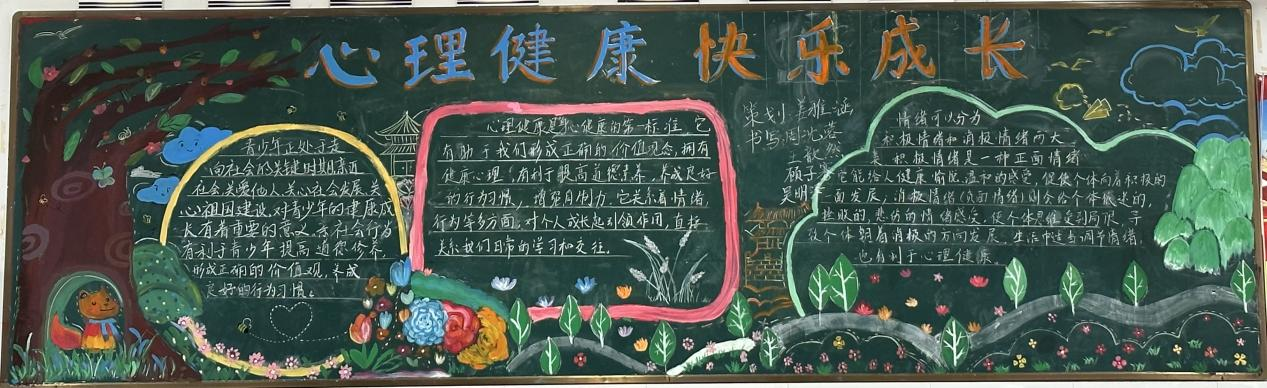 心理健康 快乐成长
青少年正处于走
向社会的关键时期亲近
社会关爱他人关心社会发展关
心祖国建设对青少年的健康成
长有着重要的意义亲社会行为
有利于青少年提高道德修养
形成正确的价值观,养成
良好的行为习惯。
心理健康是身心健康的第一标准,它
有助于我们形成正确的价值观念,拥有
健康心理,有利于提高道德素养,养成良好
的行为习惯,增强自制力,它关系着情绪,
行为等多方面,对个人成长起引领作用,直接
关系我们日常的学习和交往。
策划:姜雅涵
书写:周
情绪可以分为
积极情绪和消极情绪两大
类 积极情绪是一种正面情绪
它能给人健康 愉悦 温和的感受,促使个体向着积极的
面发展,消极情绪(负面情绪)则会给个体低迷的,
挫败的,悲伤的情绪感受,使个体思维受到局限,导
致个体朝着消极的方向发展,生活中适当调节情绪,
也有利于心理健康。